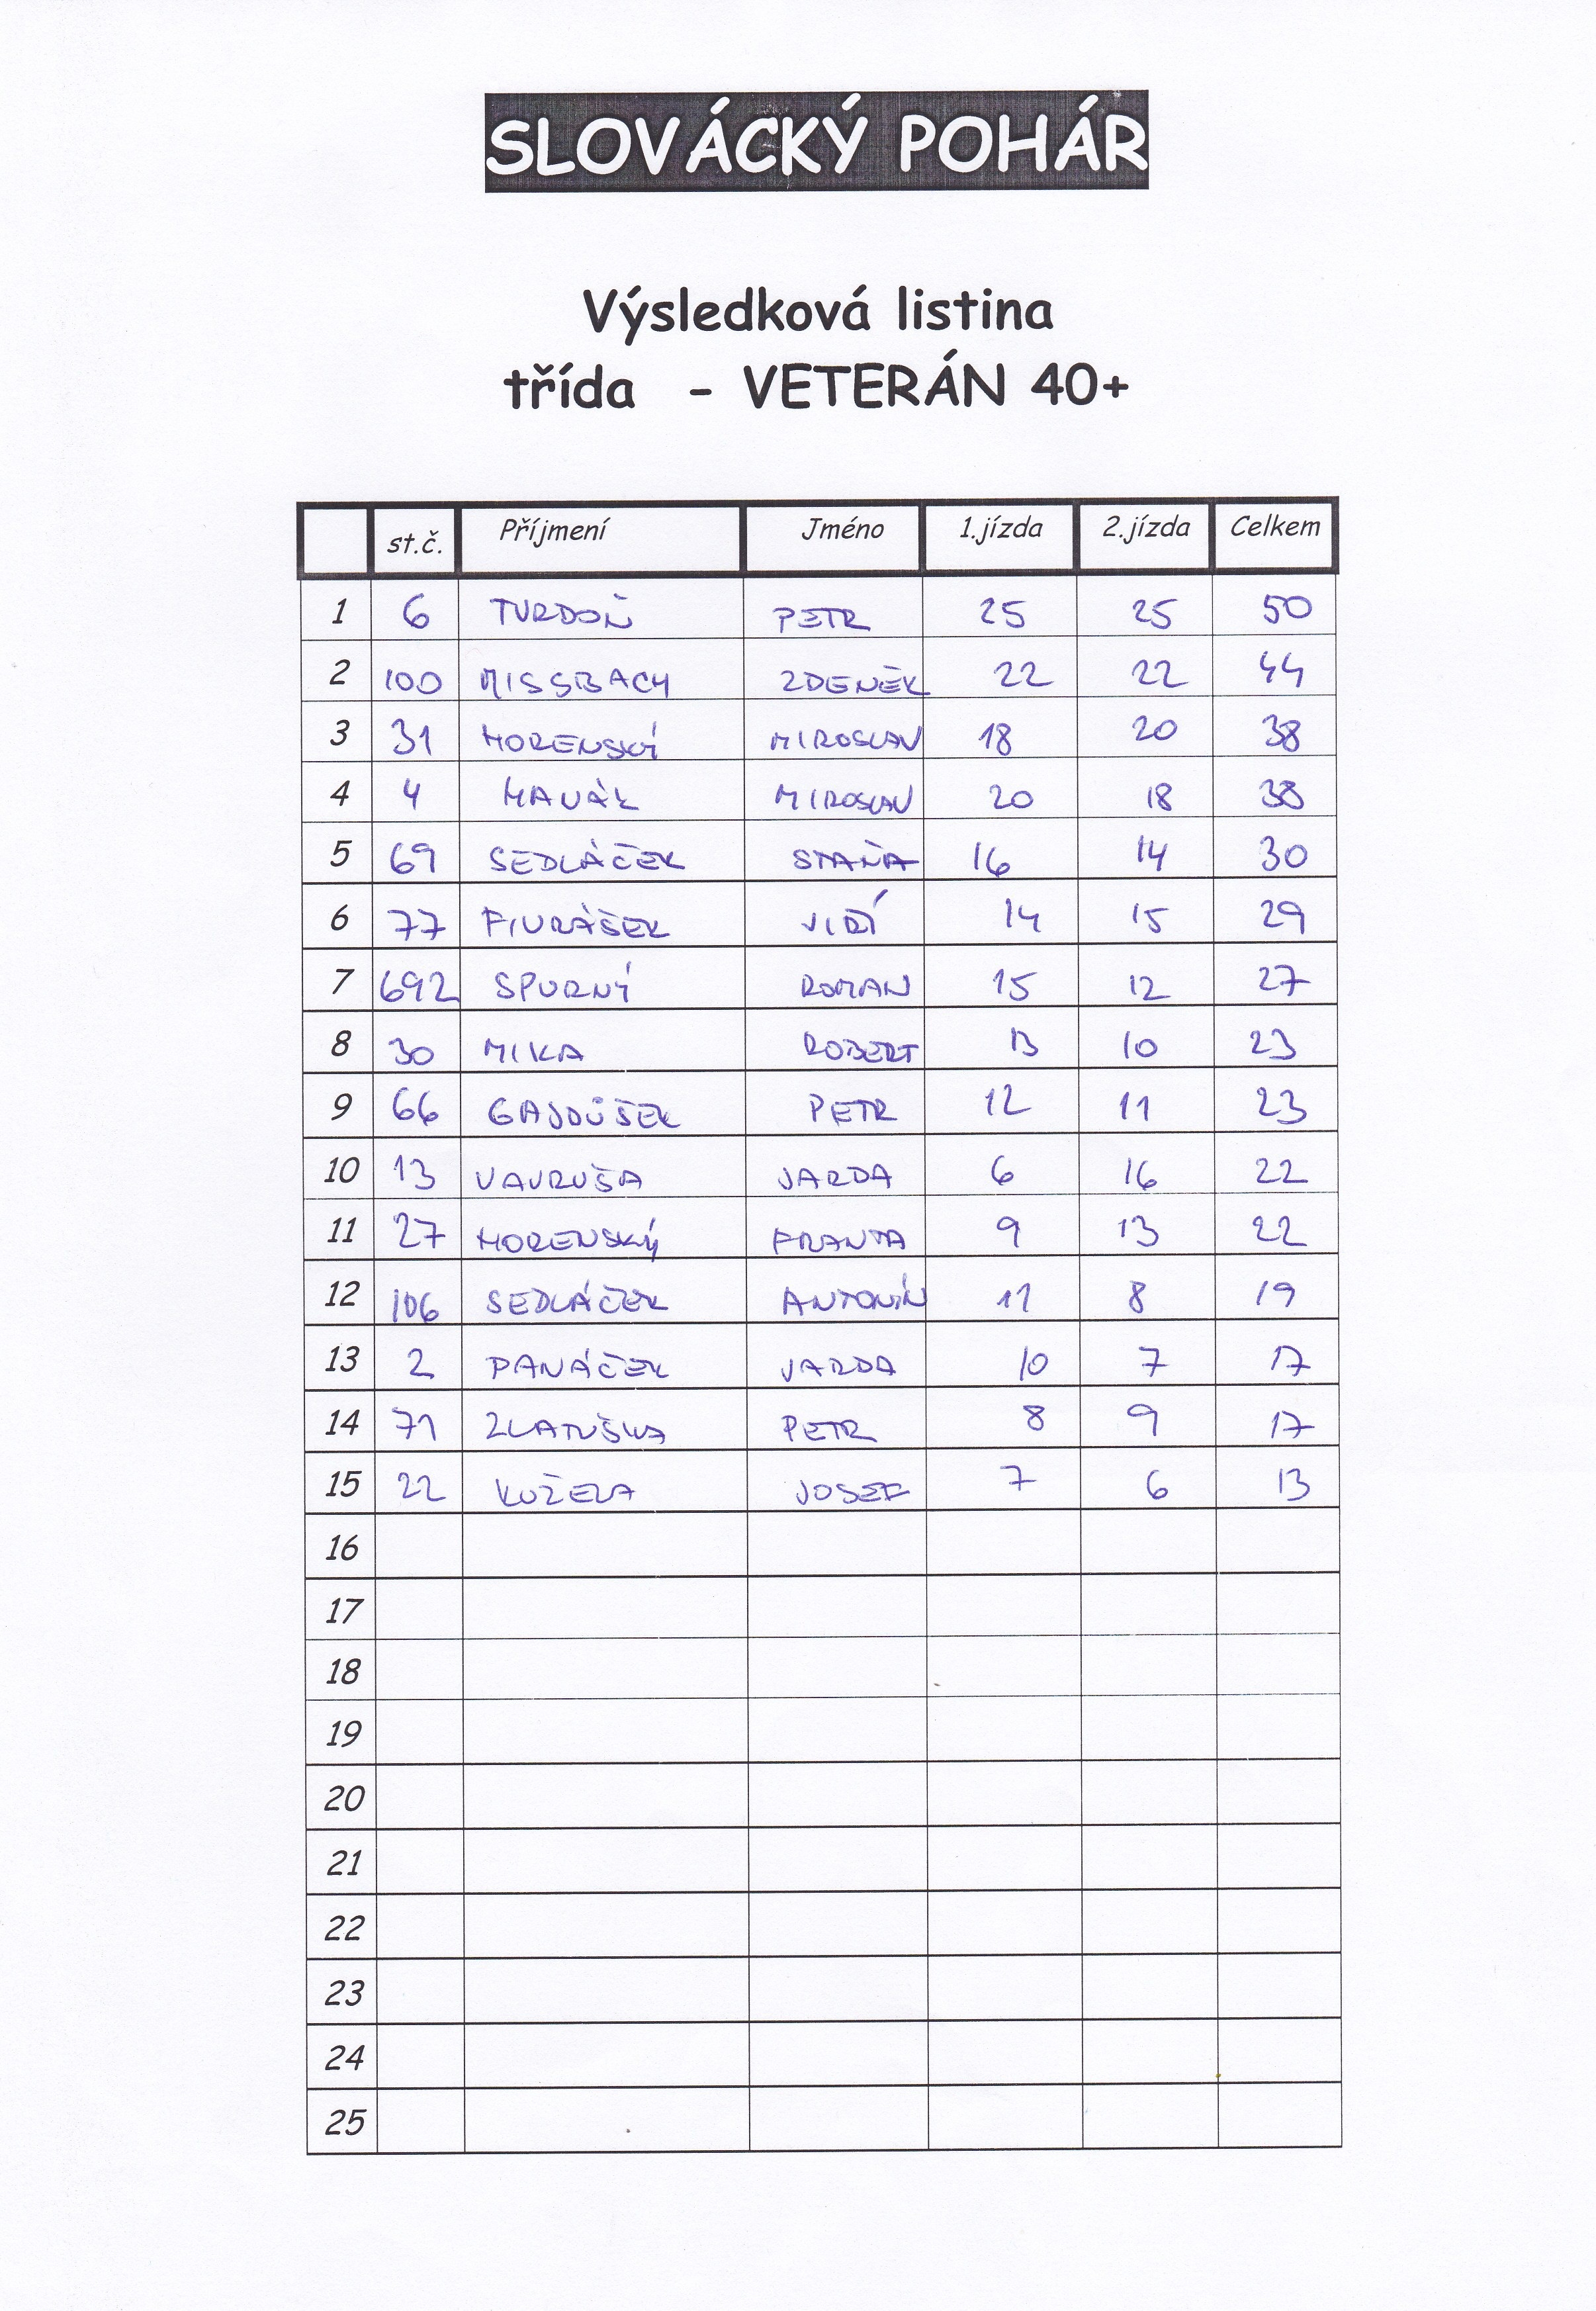 SLOVÁCKÝ POHÁR
Výsledková listina
třída - VETERÁN 40+
st.č. Příjmení Jméno 1.jízda 2.jízda Celkem
1 6 TURDOŇ PETR 25 25 50
2 100 MISSBACH ZDENĚK 22 22 44
3 31 HORENSKÝ MIROSLAV 18 20 38
4 4 MIROSLAV 20 18 38
5 69 SEDLÁČEK STAŇA 16 14 30
6 77 FIURÁŠEK JIŘÍ 14 15 29
7 692 SPURNÝ ROMAN 15 12 27
8 30 MIKA ROBERT 13 10 23
9 66 GAJDŮŠEK PETR 12 11 23
10 13 VAVRUŠA JARDA 6 16 22
11 27 HORENSKÝ FRANTA 9 13 22
12 106 SEDLÁČEK ANTONÍN 11 8 19
13 2 PANÁČEK JARDA 10 7 17
14 71 ZLATUŠKA PETR 8 9 17
15 22 KUŽELA JOSEF 7 6 13
16
17
18
19
20
21
22
23
24
25